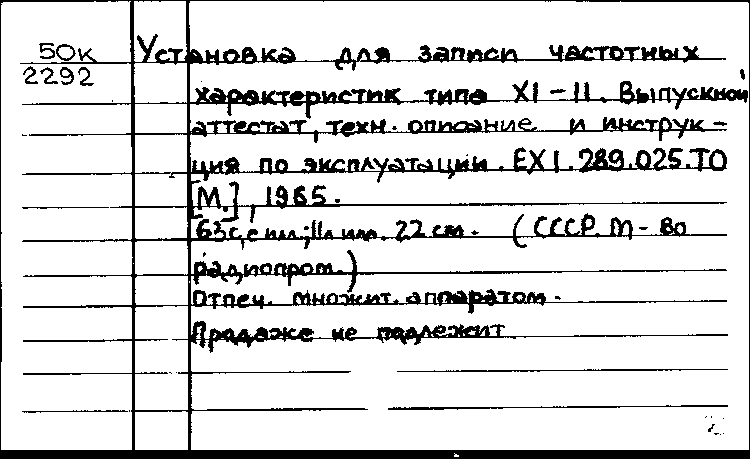 50к
2292
Установка для записи частотных
характеристик типа XI-II. Выпускной
аттестат, техн. описание и инструк-
ция по эксплуатации. ЕХ1.289.025.ТО
[М.], 1965.
63с, с илл.; 11л илл. 22 см. (СССР. М-во
радиопром.)
Отпеч. множит. аппаратом.
Продаже не подлежит